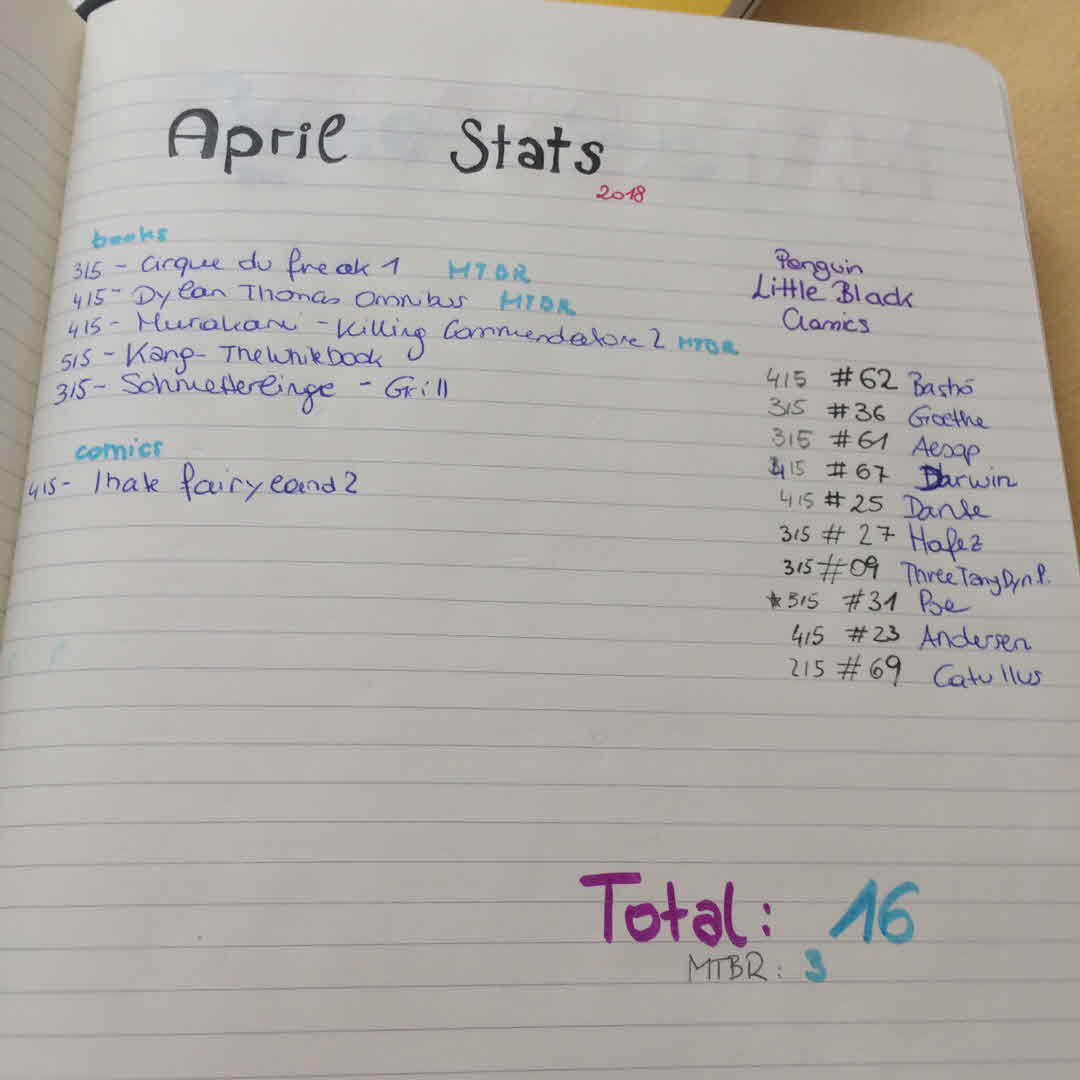 April Stats
2018
books
3/5 - Cirque du freak 1 MTBR
4/5 - Dylan Thomas Omnibus MTBR
4/5 - Murakami - Killing Commendatore 2 MTBR
5/5 - Kang - The White book
3/5 - Schmetterlinge - Grill
comics
4/5 - I hate fairyland 2
Penguin
Little Black
Classics
4/5 #62 Bashō
3/5 #36 Goethe
3/5 #61 Aesop
4/5 #67 Darwin
4/5 #25 Dante
3/5 #27 Hafez
3/5 #09 Three Tang Dyn. P.
★5/5 #31 Poe
4/5 #23 Andersen
2/5 #69 Catullus
Total: 16
MTBR: 3